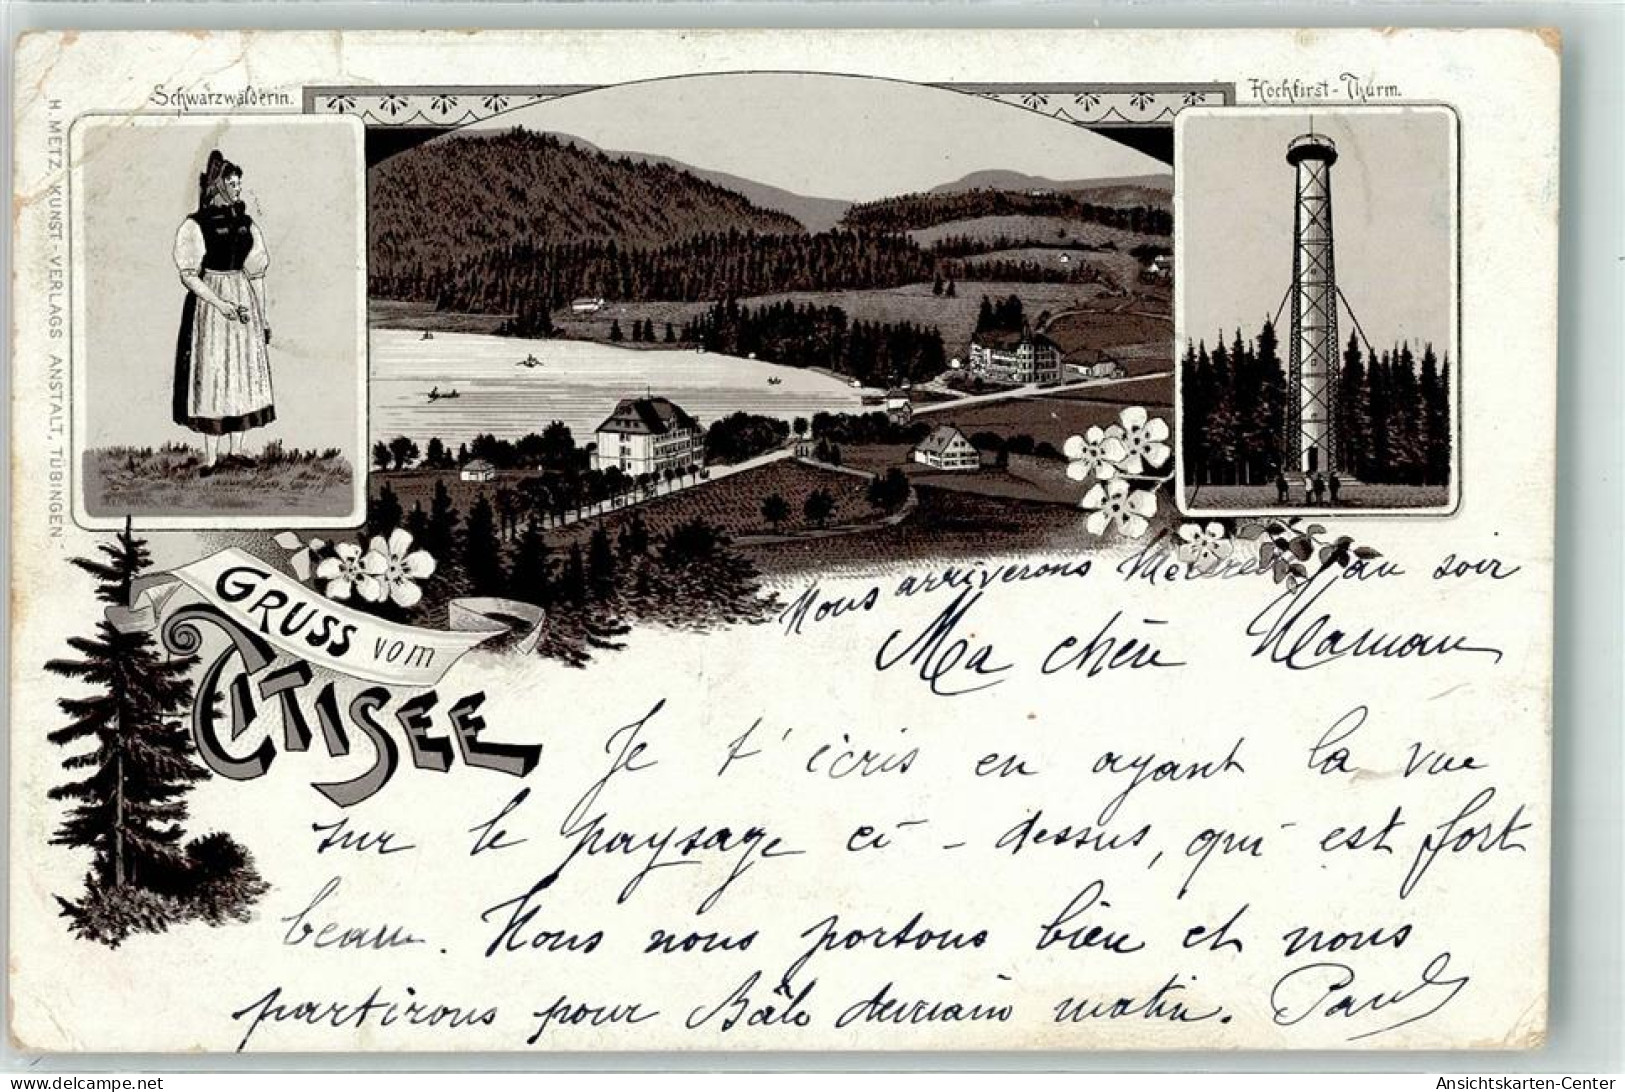 Schwarzwälderin.
Hochfirst-Thurm.
H. METZ, KUNST-VERLAGS ANSTALT, TÜBINGEN.
GRUSS vom
TITISEE
Nous arriverons au soir
Ma chère Maman
Je t'écris en ayant la vue
sur le paysage ci-dessus, qui est fort
beau. Nous nous portons bien et nous
partirons pour Bâle demain matin. Paul
Ansichtskarten-Center